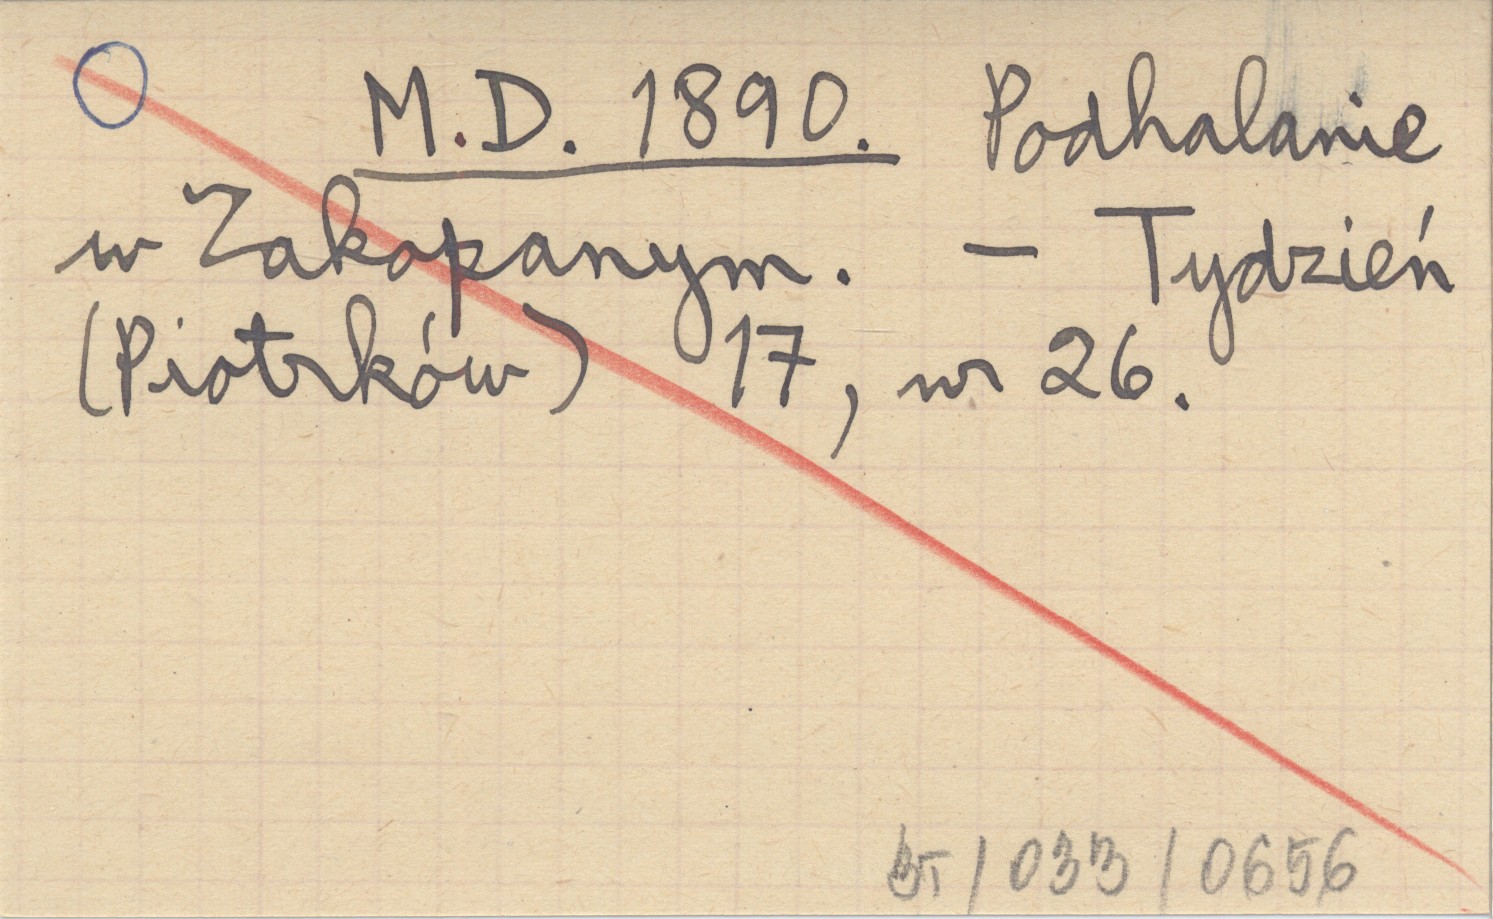 M.D. 1890. Podhalanie
w Zakopanym. — Tydzień
(Piotrków) 17, nr 26.
BT/033/0656